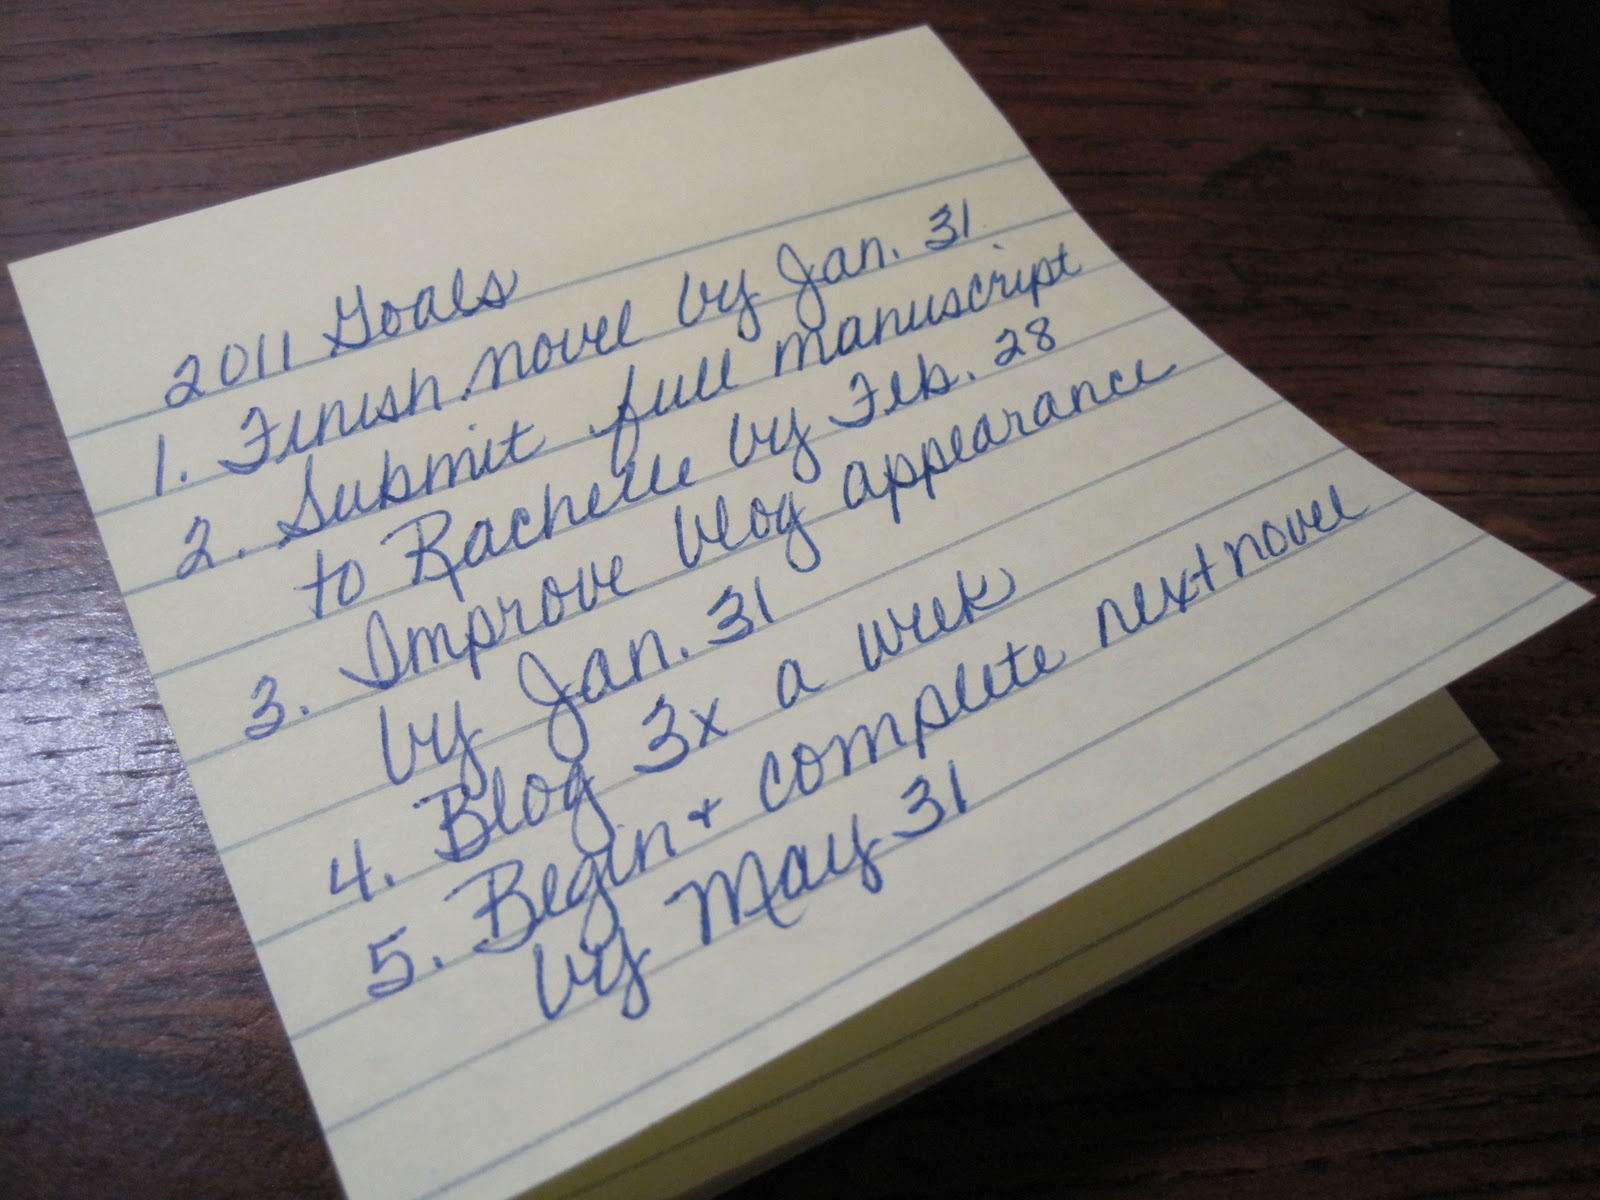 2011 Goals
1. Finish novel by Jan. 31
2. Submit full manuscript
to Rachelle by Feb. 28
3. Improve blog appearance
by Jan. 31
4. Blog 3x a week
5. Begin + complete next novel
by May 31